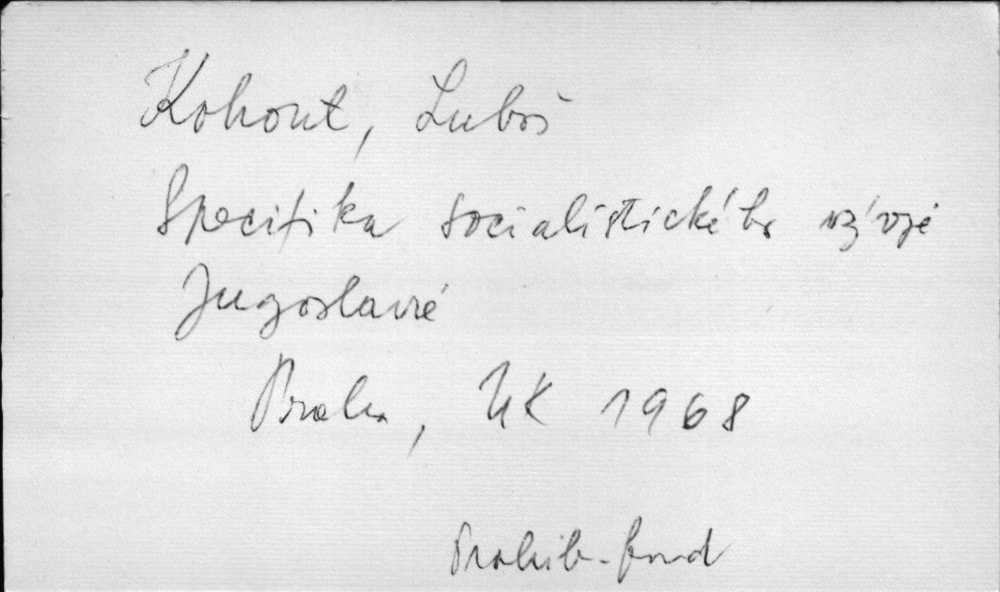 Kohout, Luboš
Specifika socialistického vývoje
Jugoslavie
Praha, UK 1968
Prohib. fond